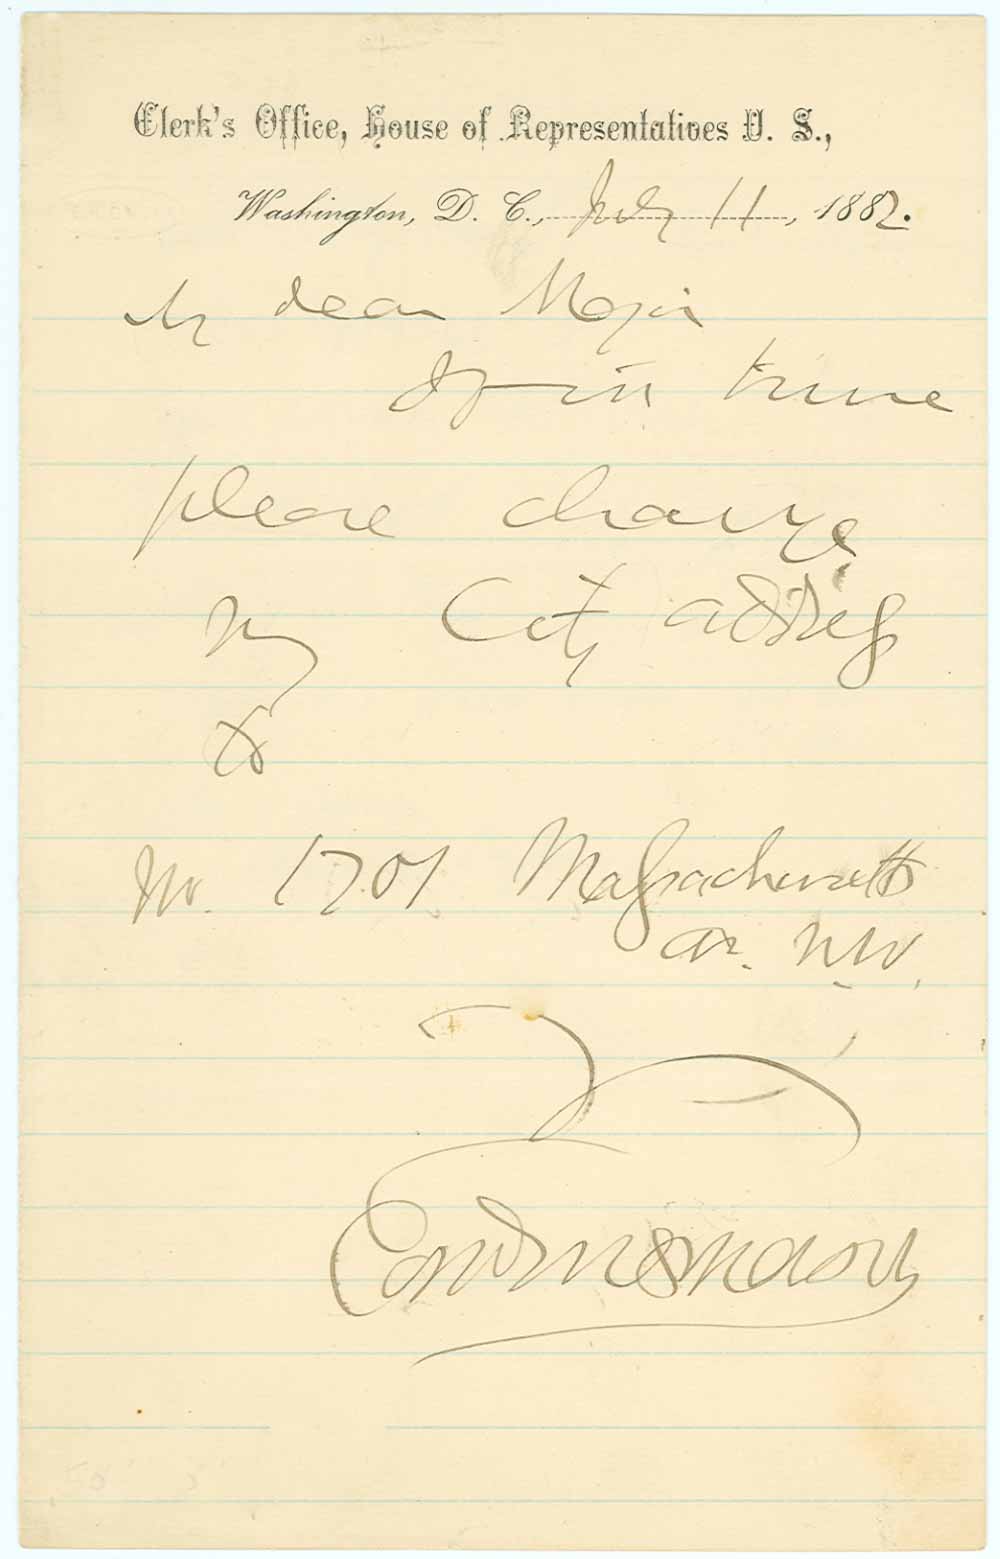 Clerk's Office, House of Representatives U. S.,
Washington, D. C., July 11, 1882.
My dear Major
If in time
please change
my City address
to
No. 1701 Massachusetts
av. N.W.